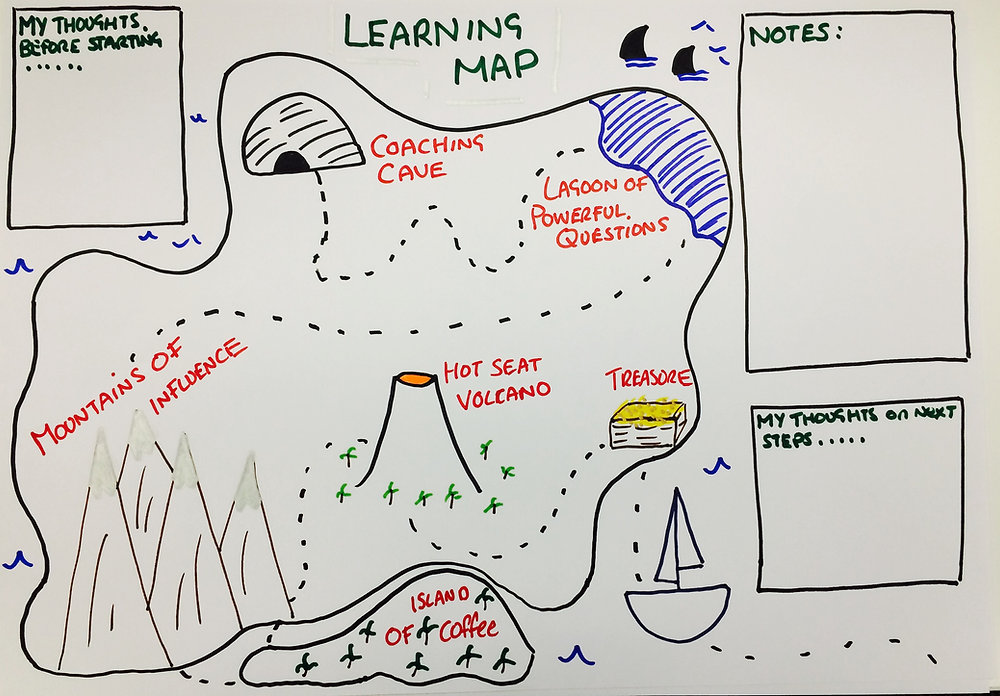 MY THOUGHTS.
BEFORE STARTING
......
LEARNING
MAP
NOTES:
COACHING
CAVE
LAGOON OF
POWERFUL.
QUESTIONS
MOUNTAINS OF
INFLUENCE
HOT SEAT
VOLCANO
TREASURE
MY THOUGHTS on NEXT
STEPS.....
ISLAND
OF Coffee